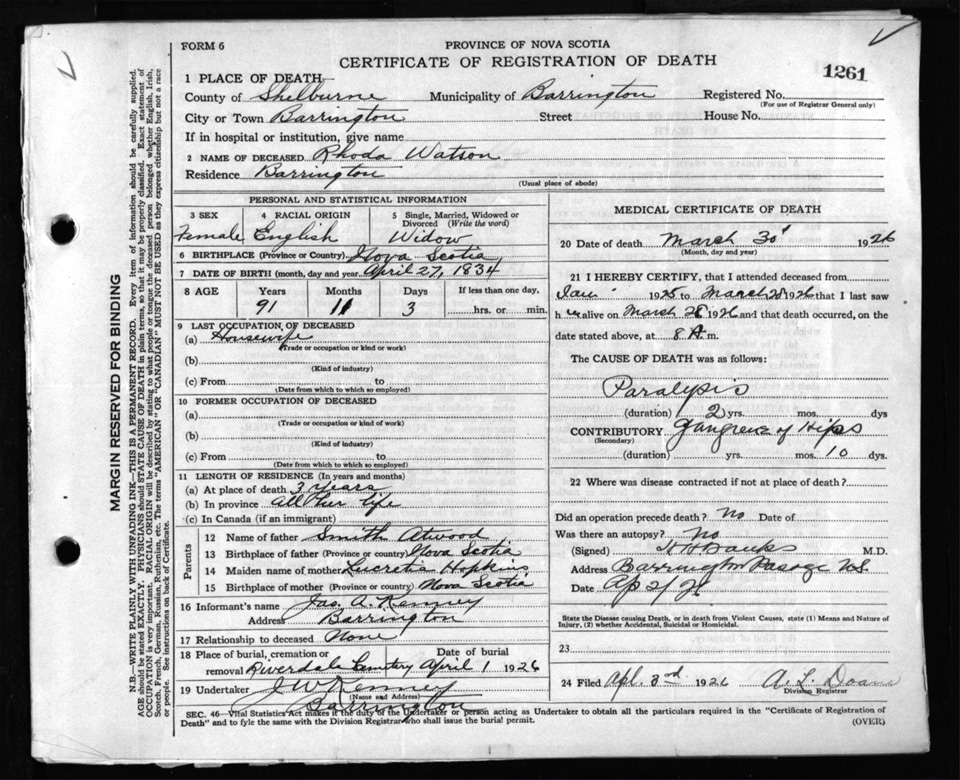 FORM 6
PROVINCE OF NOVA SCOTIA
CERTIFICATE OF REGISTRATION OF DEATH
1261
1 PLACE OF DEATH
County of Shelburne Municipality of Barrington Registered No.
(For use of Registrar General only)
City or Town Barrington Street House No.
If in hospital or institution, give name
2 NAME OF DECEASED Rhoda Watson
Residence Barrington
(Usual place of abode)
PERSONAL AND STATISTICAL INFORMATION
3 SEX 4 RACIAL ORIGIN 5 Single, Married, Widowed or Divorced (Write the word)
Female English Widow
6 BIRTHPLACE (Province or Country) Nova Scotia
7 DATE OF BIRTH (month, day and year) April 27, 1834
8 AGE Years Months Days If less than one day,
91 11 3 hrs. or min.
9 LAST OCCUPATION OF DECEASED
(a) Housewife
(Trade or occupation or kind or work)
(b)
(Kind of industry)
(c) From to
(Date from which to which so employed)
10 FORMER OCCUPATION OF DECEASED
(a)
(Trade or occupation or kind of work)
(b)
(Kind of industry)
(c) From to
(Date from which to which so employed)
11 LENGTH OF RESIDENCE (In years and months)
(a) At place of death 3 years
(b) In province all her life
(c) In Canada (if an immigrant)
Parents
12 Name of father Smith Atwood
13 Birthplace of father (Province or country) Nova Scotia
14 Maiden name of mother Lucretia Hopkins
15 Birthplace of mother (Province or country) Nova Scotia
16 Informant's name Jas. A. Kenney
Address Barrington
17 Relationship to deceased None
18 Place of burial, cremation or Date of burial
removal Riverdale Cemetery April 1 1926
19 Undertaker J W Kenney
(Name and Address)
Barrington
MEDICAL CERTIFICATE OF DEATH
20 Date of death March 30 1926
(Month, day and year)
21 I HEREBY CERTIFY, that I attended deceased from
1925 to March 28 1926 that I last saw
her alive on March 28 1926 and that death occurred, on the
date stated above, at 8 A.m.
The CAUSE OF DEATH was as follows:
Paralysis
(duration) 2 yrs. mos. dys
CONTRIBUTORY Gangrene of Hips
(Secondary)
(duration) yrs. mos. 10 dys.
22 Where was disease contracted if not at place of death?
Did an operation precede death? No Date of
Was there an autopsy? No
(Signed) Banks M.D.
Address Barrington Passage N.S.
Date Ap 2/26
State the Disease causing Death, or in death from Violent Causes, state (1) Means and Nature of
Injury, (2) whether Accidental, Suicidal or Homicidal.
23
24 Filed Apl. 3rd 1926 A. L. Doane
Division Registrar
SEC. 46—Vital Statistics Act makes it the duty of the Undertaker or person acting as Undertaker to obtain all the particulars required in the "Certificate of Registration of
Death" and to fyle the same with the Division Registrar who shall issue the burial permit. (OVER)
MARGIN RESERVED FOR BINDING
N.B.—WRITE PLAINLY WITH UNFADING INK—THIS IS A PERMANENT RECORD. Every item of information should be carefully supplied.
AGE should be stated EXACTLY. PHYSICIANS should STATE CAUSE OF DEATH in plain terms, so that it may be properly classified. Exact statement of
OCCUPATION is very important. RACIAL ORIGIN will be described by stating to what people or tongue the deceased person belonged whether English, Irish,
Scotch, French, German, Russian, Ruthenian, etc. The terms "AMERICAN" OR "CANADIAN" MUST NOT BE USED as they express citizenship but not a race
or people. See instructions on back of Certificate.